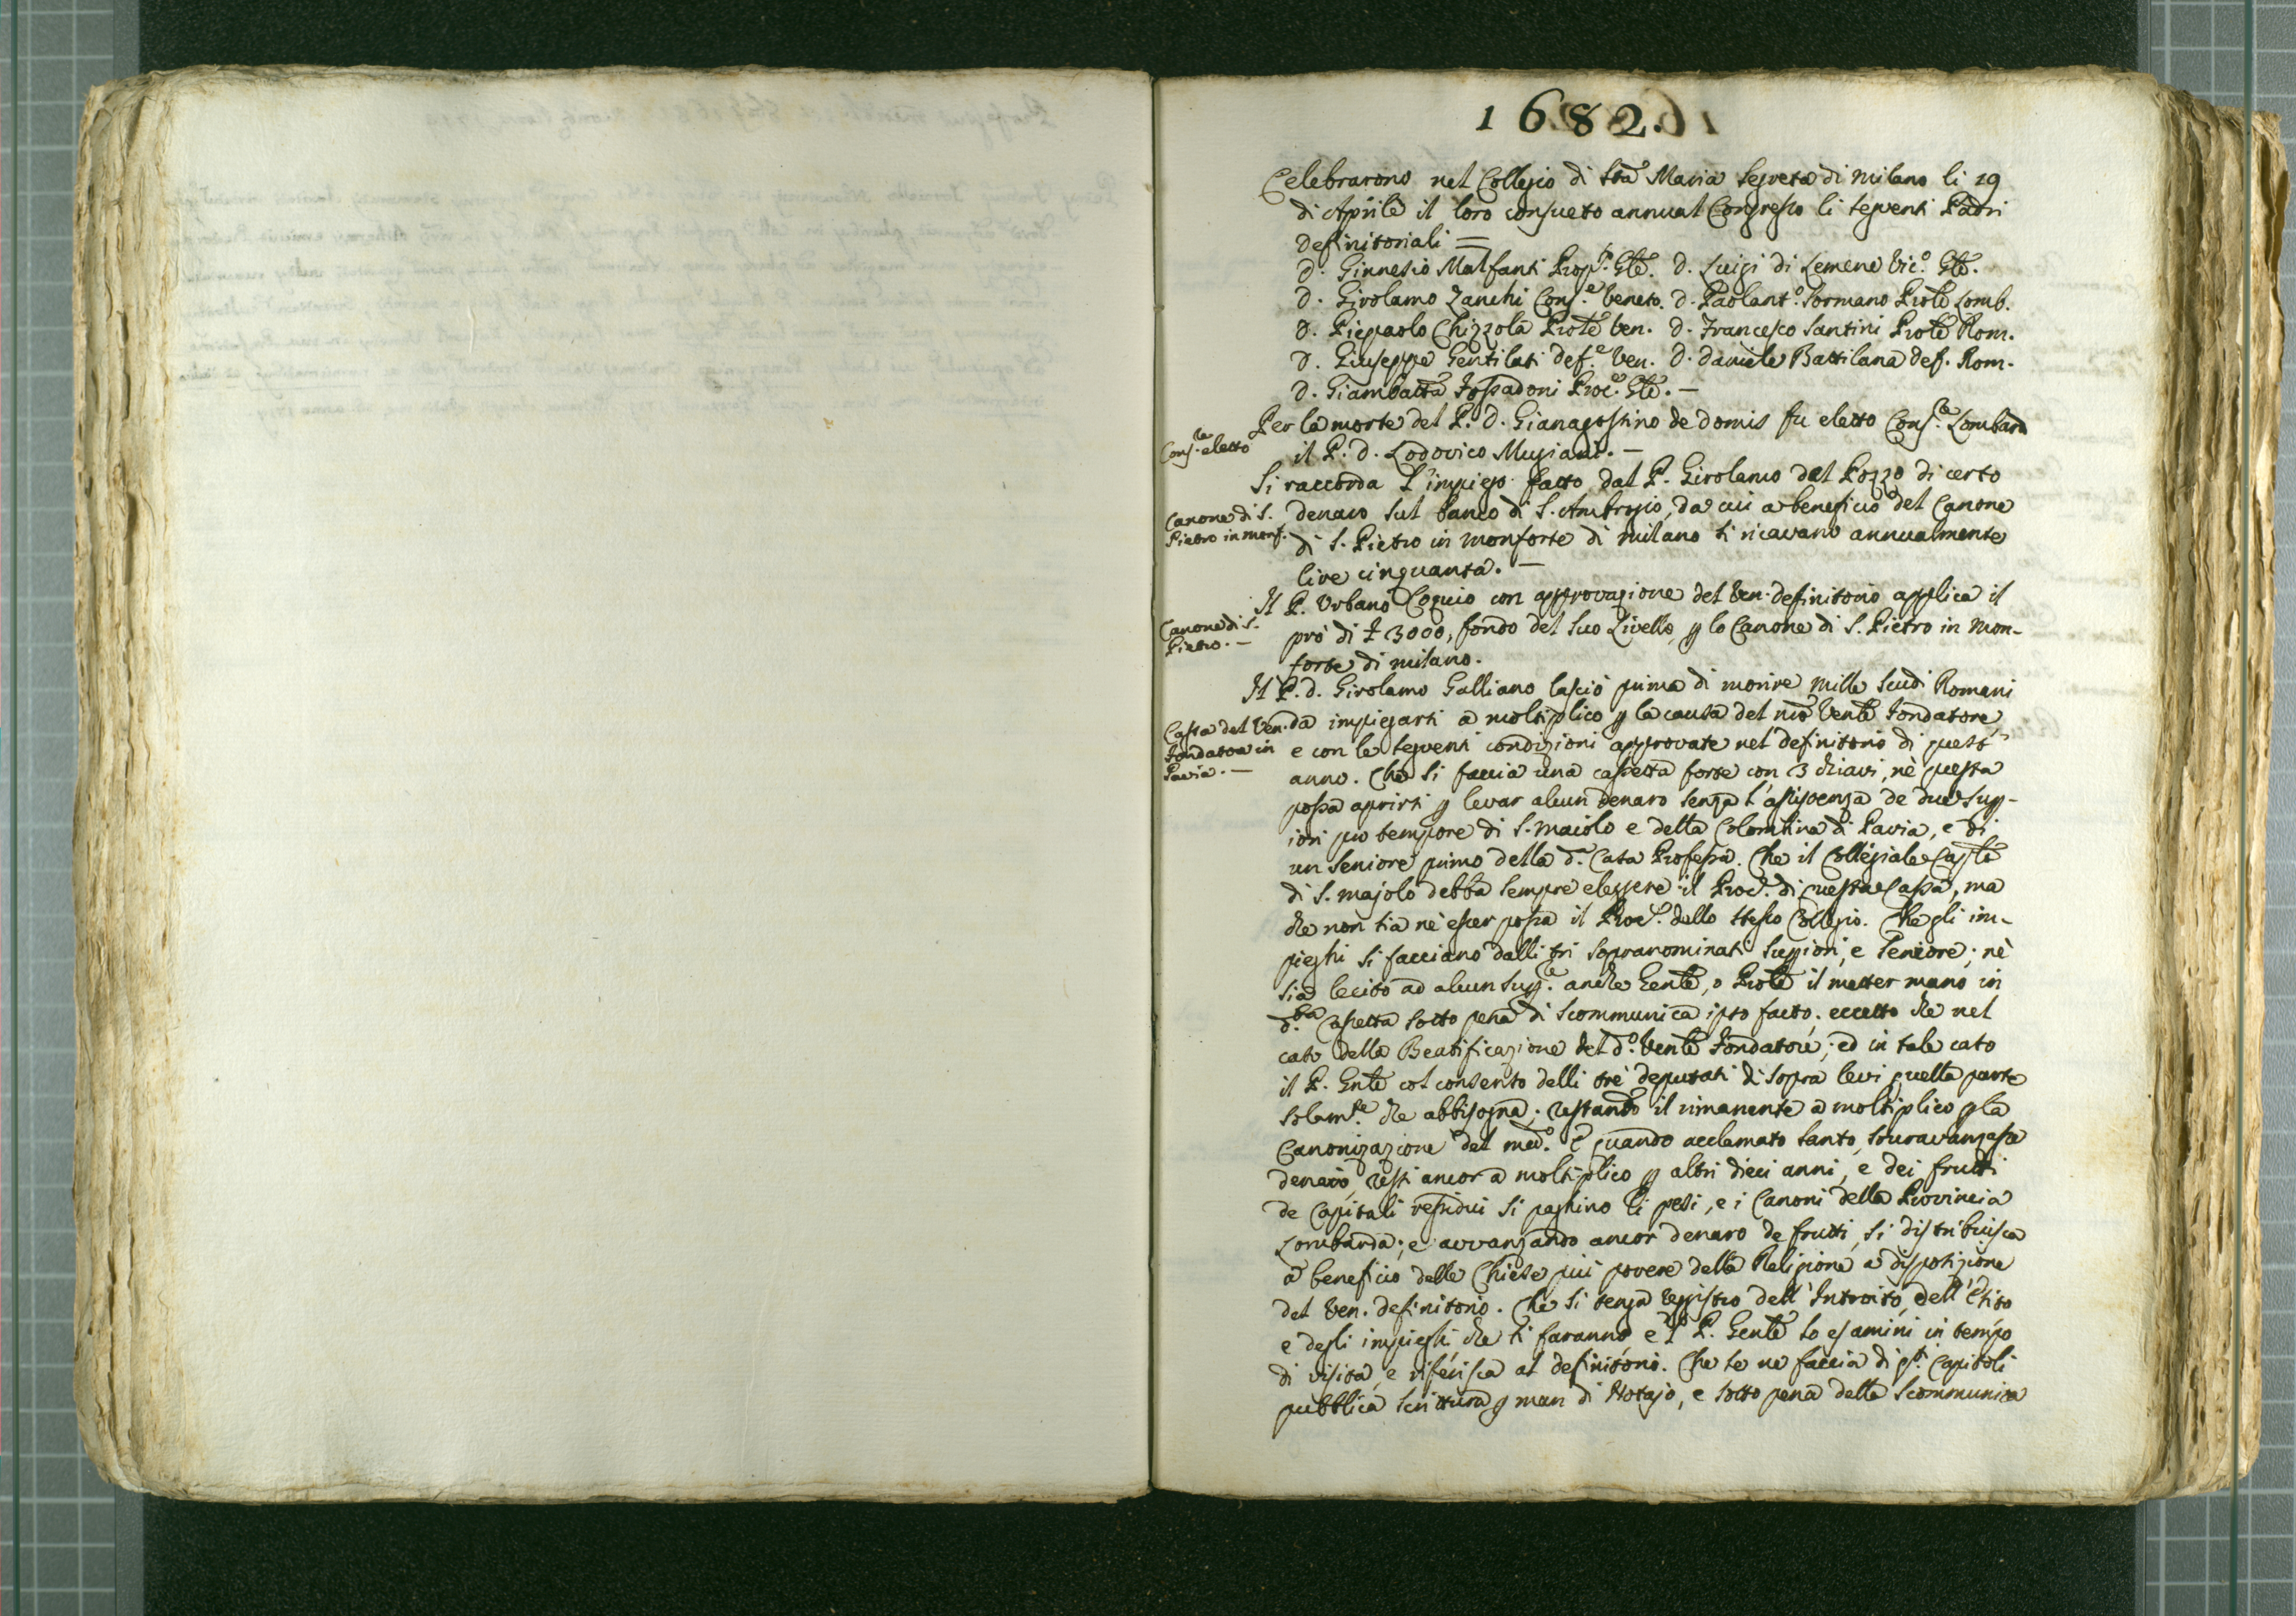 1682.
Celebrarono nel Collegio di Sta Maria Segreta di Milano li 19
di Aprile il loro consueto annual Congresso li seguenti Padri
definitoriali =
D. Ginnesio Malfanti Prop.to Gle. D. Luigi di Lemene Vic.o Gle.
D. Girolamo Zanchi Cons.e Veneto. D. Paolant.o Sormano Prole Lomb.
D. Piepaolo Chizzola Prole Ven. D. Francesco Santini Prole Rom.
D. Giuseppe Gentilati def.e Ven. D. Daniele Battilana def. Rom.
D. Giambatta Fossadoni Proc.e Gle. —
Cons.re eletto
Per la morte del P. D. Gianagostino de Domis fu eletto Cons.re Lombard
il P. D. Lodovico Mugiani. —
Si raccorda l'impiego fatto dal P. Girolamo dal Pozzo di certo
Canone di S.
Pietro in monf.
denaro sul banco di S. Ambrogio, da cui a beneficio del Canone
di S. Pietro in Monforte di Milano si ricavano annualmente
lire cinquanta. —
Il P. Urbano Coquio con approvazione del Ven. definitorio applica il
Canone di S.
Pietro. —
prò di £ 3000, fondo del suo Livello, p lo Canone di S. Pietro in Mon-
forte di Milano.
Il P. D. Girolamo Galliano lasciò prima di morire mille scudi Romani
Cassa del Ven.
Fondatore in
Pavia. —
da impiegarsi a moltiplico p la causa del nro Vente Fondatore
e con le seguenti condizioni approvate nel definitorio di quest'
anno. Che si faccia una cassetta forte con 3 chiavi, nè questa
possa aprirsi p levar alcun denaro senza l'assistenza de due supp-
iori pro tempore di S. Maiolo e della Colombina di Pavia, e di
un Seniore primo della d.a Casa Professa. Che il Collegiale Caple
di S. Majolo debba sempre eleggere il Proc.e di questa Cassa, ma
che non sia nè esser possa il Proc.e dello stesso Collegio. Che gli im-
pieghi si facciano dalli tri sopranominati suppiori, e Seniore; nè
sia lecito ad alcun supp.e anche Gente, o Prole il metter mano in
d.ta Cassetta sotto pena di scommunica ipso facto, eccetto che nel
caso della Beatificazione del d.o Vente Fondatore; ed in tale caso
il P. Gnle col consenso delli tre deputati di sopra levi quella parte
solam.te che abbisogna; restando il rimanente a moltiplico p la
Canonizazione del med.o E quando acclamato Santo, souravanzasse
denaro, resti ancor a moltiplico p altri dieci anni, e dei frutti
de Capitali residui si paghino li pesi, e i Canoni della Provincia
Lombarda; e avvanzando ancor denaro de frutti, si distribuisca
a beneficio delle Chiese più povere della Religione a disposizione
del Ven. definitorio. Che si tenga reggistro dell'Introito, dell'Esito
e degli impieghi che si faranno e 'l P. Gente lo esamini in tempo
di visita, e riferisca al definitorio. Che se ne faccia di qsti Capitoli
pubblica scrittura p man di Notajo, e sotto pena della Scommunica